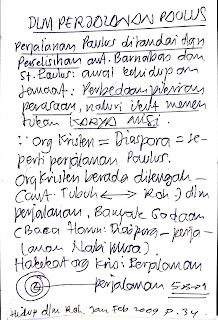 DLM PERJALANAN PAULUS
Perjalanan Paulus ditandai dgn
Perselisihan ant. Barnabas dan
St. Paulus: awal kehidupan
Jemaat: Perbedaan pikiran
perasaan, naluri ikut menen
tukan KARYA MISI.
∵ org Kristen = Diaspora = se-
perti perjalanan Paulus.
Org Kristen berada ditengah -
(ant. Tubuh ⟷ Roh.) dlm
perjalanan, Banyak Godaan
(Baca Homili: Diaspora - perja-
lanan Nabi Musa).
Hakekat org Kris: Perjalanan
perjalanan
Hidup dlm Roh. Jan Feb 2009 p. 34.